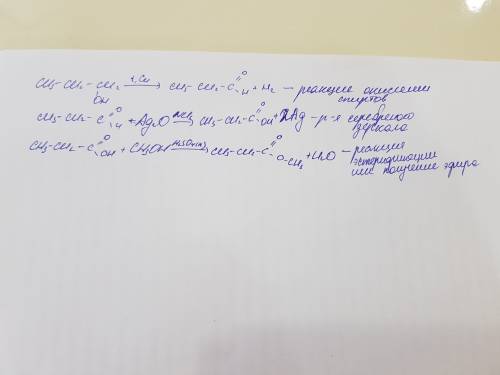 CH3-CH2-CH2 —t, Cu→ CH3-CH2-C=O H + H2 — реакция окисления
OH спиртов
CH3-CH2-C=O H + Ag2O —NH3→ CH3-CH2-C=O OH + 2Ag — р-я серебряного
зеркала
CH3-CH2-C=O OH + CH3OH —H2SO4(к)→ CH3-CH2-C=O O-CH3 + H2O — реакция
этерификации
или получение эфира